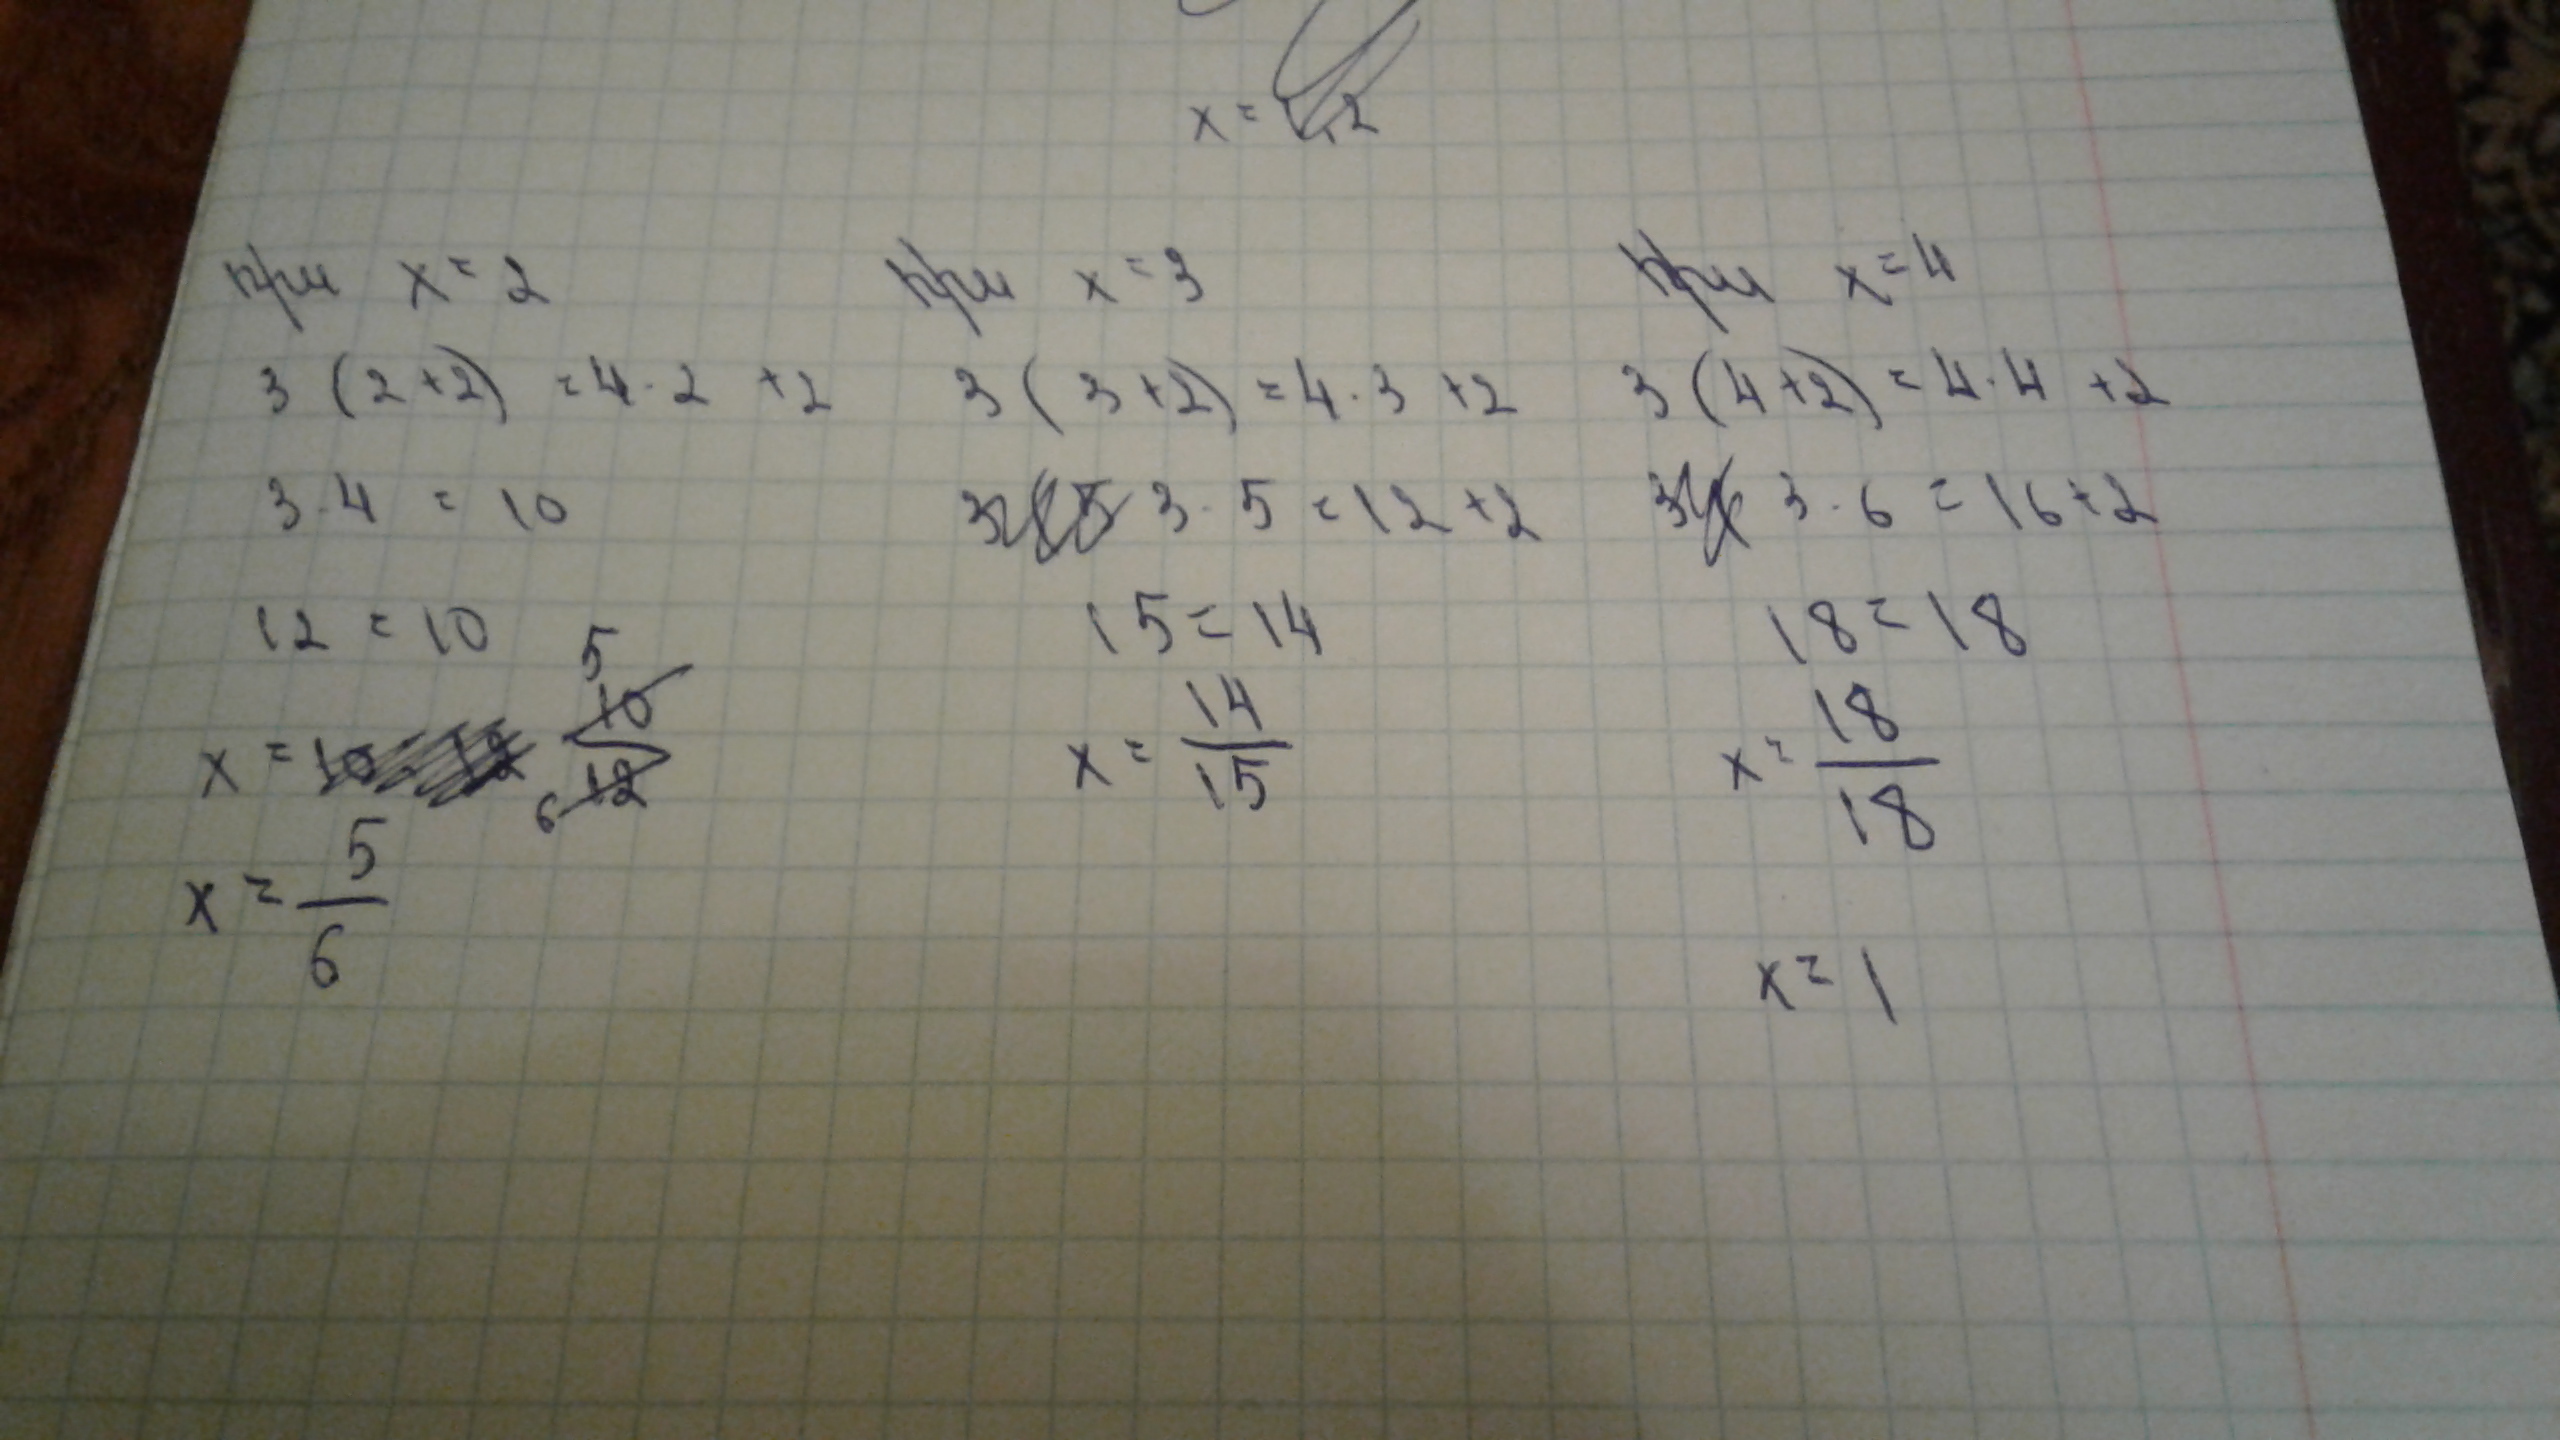 x = 1,2
при x = 2
3 (2+2) = 4·2 +2
3·4 = 10
12 = 10
x = 10/12
5
6
x = 5/6
при x = 3
3 ( 3+2) = 4·3 +2
3·5 = 12+2
15 = 14
x = 14/15
при x = 4
3 (4+2) = 4·4 +2
3·6 = 16+2
18 = 18
x = 18/18
x = 1